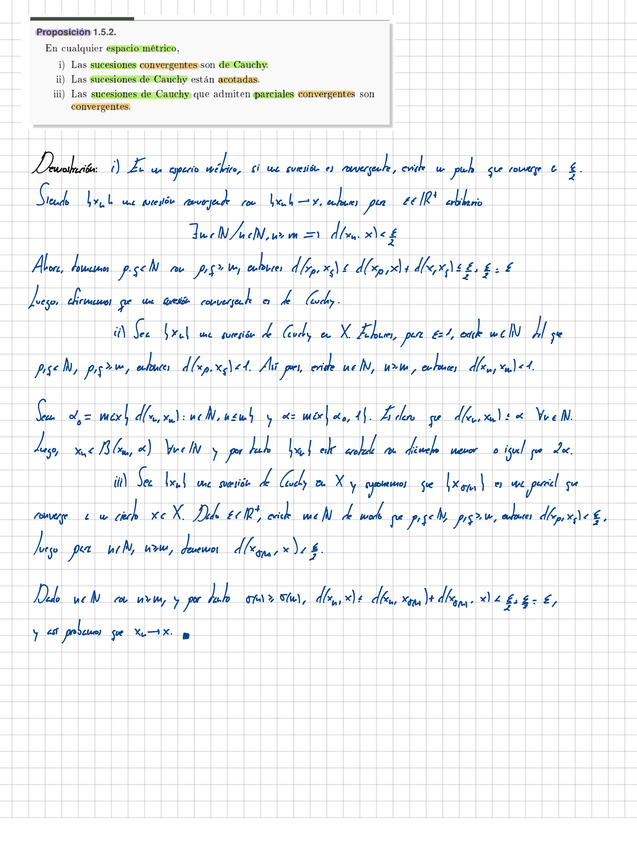 Proposición 1.5.2.
En cualquier espacio métrico,
i) Las sucesiones convergentes son de Cauchy.
ii) Las sucesiones de Cauchy están acotadas.
iii) Las sucesiones de Cauchy que admiten parciales convergentes son
convergentes.
Demostración: i) En un espacio métrico, si una sucesión es convergente, existe un punto que converge a ε/2.
Siendo {xn} una sucesión convergente con {xn} → x, entonces para ε∈ℝ⁺ arbitrario
∃m∈ℕ / n∈ℕ, n≥m ⟹ d(xn, x) < ε/2
Ahora, tomamos p,q∈ℕ con p,q≥m, entonces d(xp, xq) ≤ d(xp, x) + d(x, xq) ≤ ε/2 + ε/2 = ε
Luego, afirmamos que una sucesión convergente es de Cauchy.
ii) Sea {xn} una sucesión de Cauchy en X. Entonces, para ε=1, existe m∈ℕ tal que
p,q∈ℕ, p,q≥m, entonces d(xp, xq) < 1. Así pues, existe n∈ℕ, n≥m, entonces d(xn, xm) < 1.
Sean α₀ = max{ d(xn, xm) : n∈ℕ, n≤m} y α = max{ α₀, 1}. Es claro que d(xn, xm) ≤ α ∀n∈ℕ.
Luego, xn ∈ B(xm, α) ∀n∈ℕ y por tanto {xn} está acotada con diámetro menor o igual que 2α.
iii) Sea {xn} una sucesión de Cauchy en X y supongamos que {xσ(n)} es una parcial que
converge a un cierto x∈X. Dado ε∈ℝ⁺, existe m∈ℕ de modo que p,q∈ℕ, p,q≥m, entonces d(xp, xq) < ε/2,
luego para n∈ℕ, n≥m, tenemos d(xσ(n), x) < ε/2.
Dado n∈ℕ con n≥m, y por tanto σ(n) ≥ σ(m), d(xn, x) ≤ d(xn, xσ(n)) + d(xσ(n), x) < ε/2 + ε/2 = ε,
y así probamos que xn → x. ■